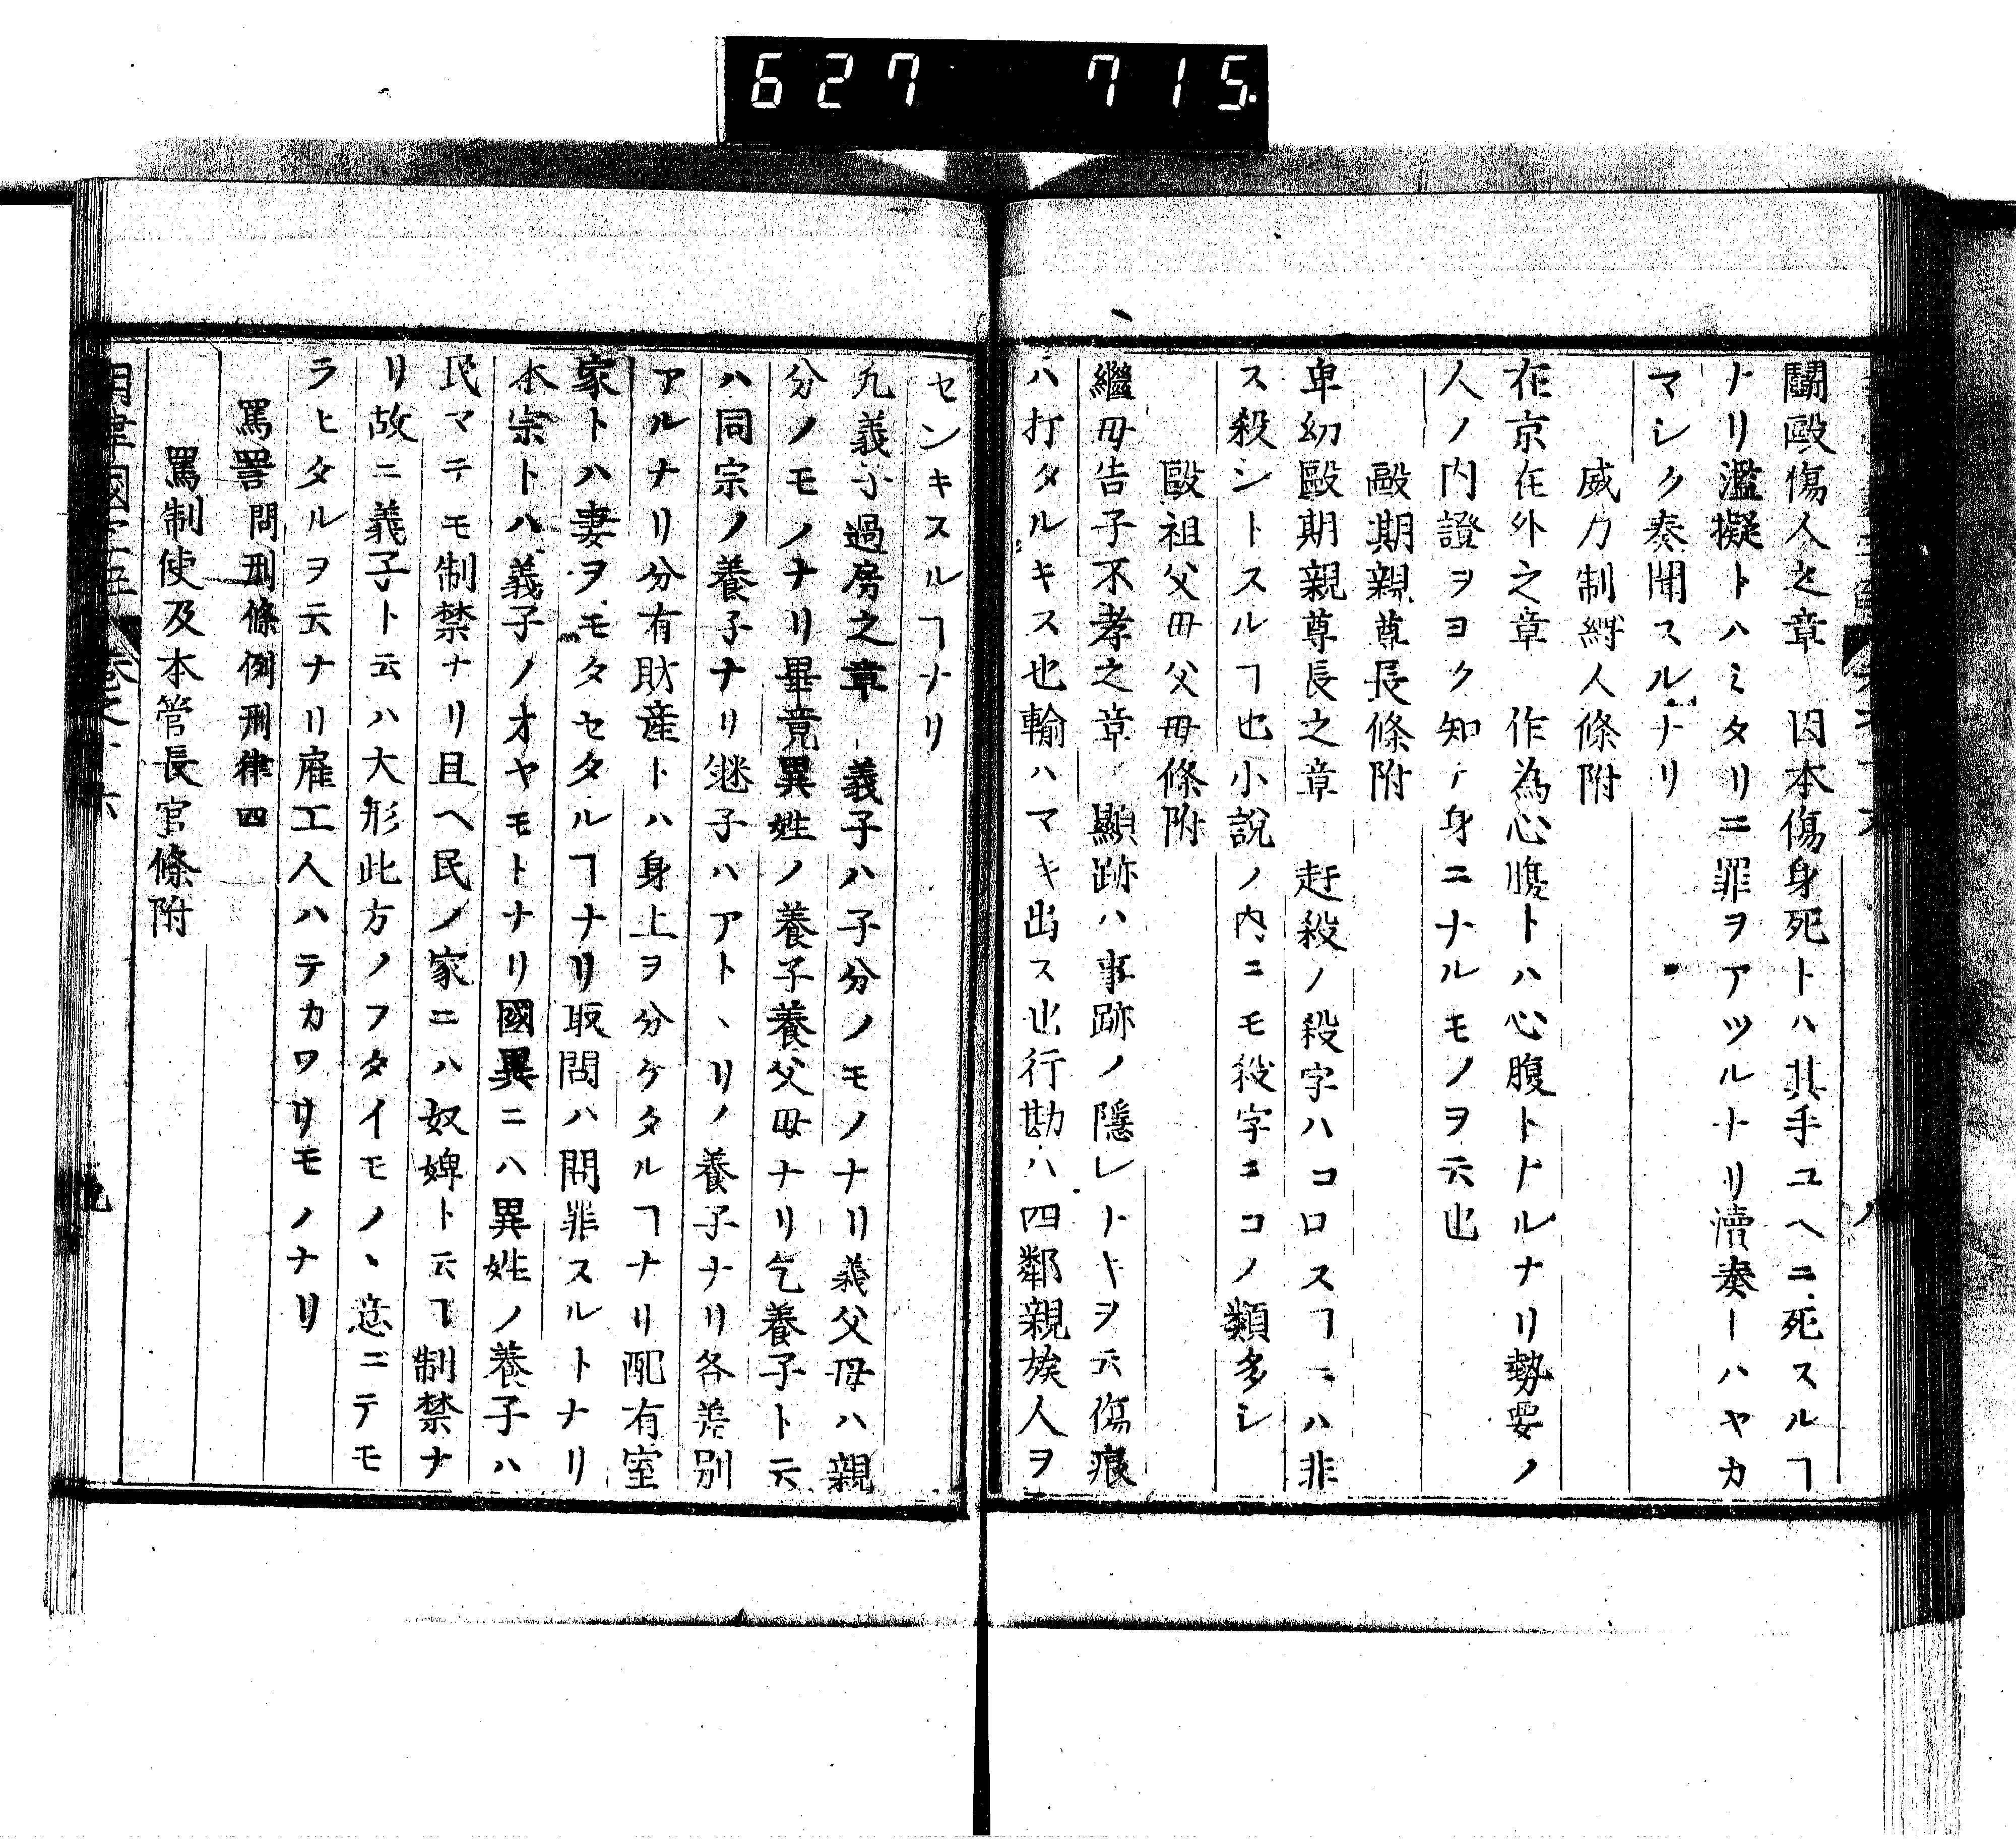 627 715.
鬪毆傷人之章 因本傷身死トハ其手ユヘニ死スルヿ
ナリ濫擬トハミタリニ罪ヲアツルナリ瀆奏ーハヤカ
マシク奏聞スルナリ
威力制縛人條附
在京在外之章 作為心腹トハ心腹トナルナリ勢要ノ
人ノ内證ヲヨク知テ身ニナルモノヲ云也
毆期親尊長條附
卑幼毆期親尊長之章 赶殺ノ殺字ハコロスヿニハ非
ス殺シトスルヿ也小説ノ内ニモ殺字ニコノ類多シ
毆祖父母父母條附
繼母告子不孝之章 顯跡ハ事跡ノ隱レナキヲ云傷痕
ハ打タルキス也輸ハマキ出ス也行勘ハ四鄰親族人ヲ
センキスルヿナリ
凡義子過房之章 義子ハ子分ノモノナリ義父母ハ親
分ノモノナリ畢竟異姓ノ養子養父母ナリ乞養子ト云
ハ同宗ノ養子ナリ継子ハアトヽリノ養子ナリ各差別
アルナリ分有財産トハ身上ヲ分ケタルヿナリ配有室
家トハ妻ヲモタセタルヿナリ取問ハ問罪スルトナリ
本宗トハ義子ノオヤモトナリ國異ニハ異姓ノ養子ハ
民マテモ制禁ナリ且ヘ民ノ家ニハ奴婢ト云ヿ制禁ナ
リ故ニ義子ト云ハ大形此方ノフタイモノヽ意ニテモ
ラヒタルヲ云ナリ雇工人ハテカワリモノナリ
罵詈 問刑條例刑律四
罵制使及本管長官條附
律國字 卷之十六 九